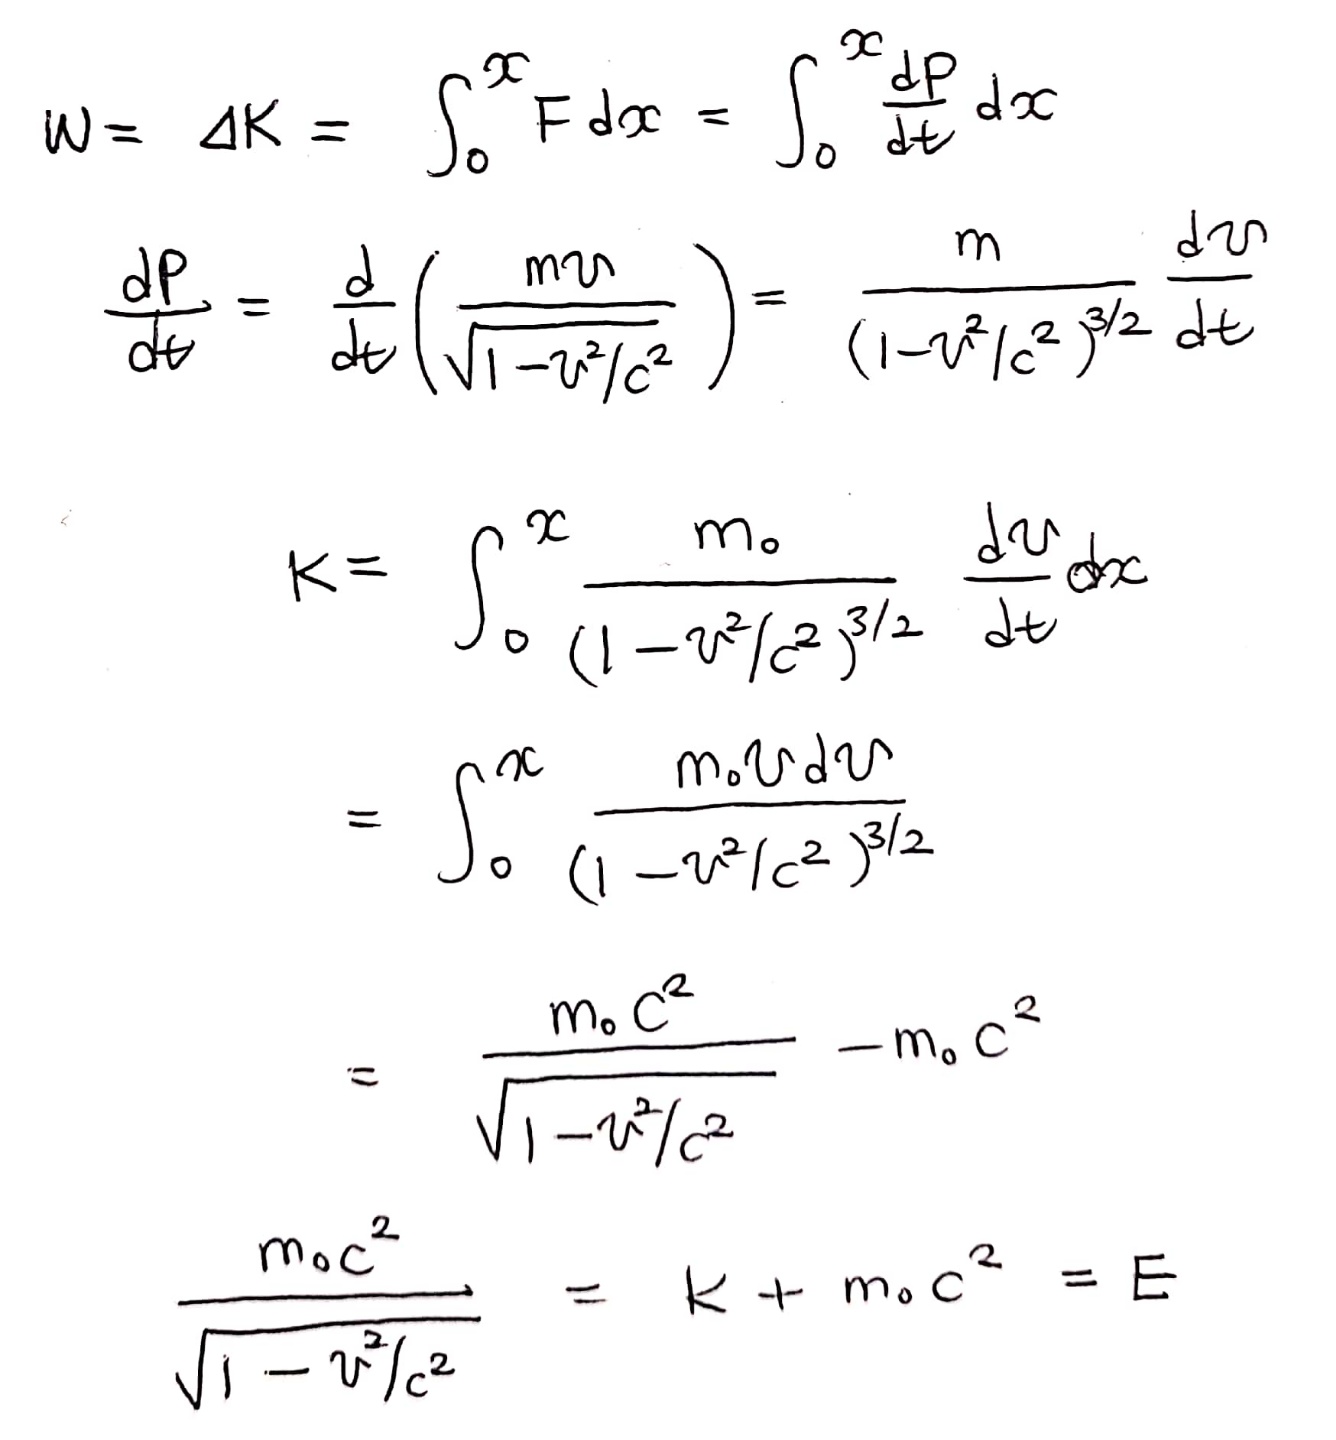 W = ΔK = ∫₀ˣ F dx = ∫₀ˣ dP/dt dx
dP/dt = d/dt (mv/√(1-v²/c²)) = m/(1-v²/c²)^3/2 dv/dt
K = ∫₀ˣ m₀/(1-v²/c²)^3/2 dv/dt dx
= ∫₀ˣ m₀vdv/(1-v²/c²)^3/2
= m₀c²/√(1-v²/c²) - m₀c²
m₀c²/√(1-v²/c²) = K + m₀c² = E